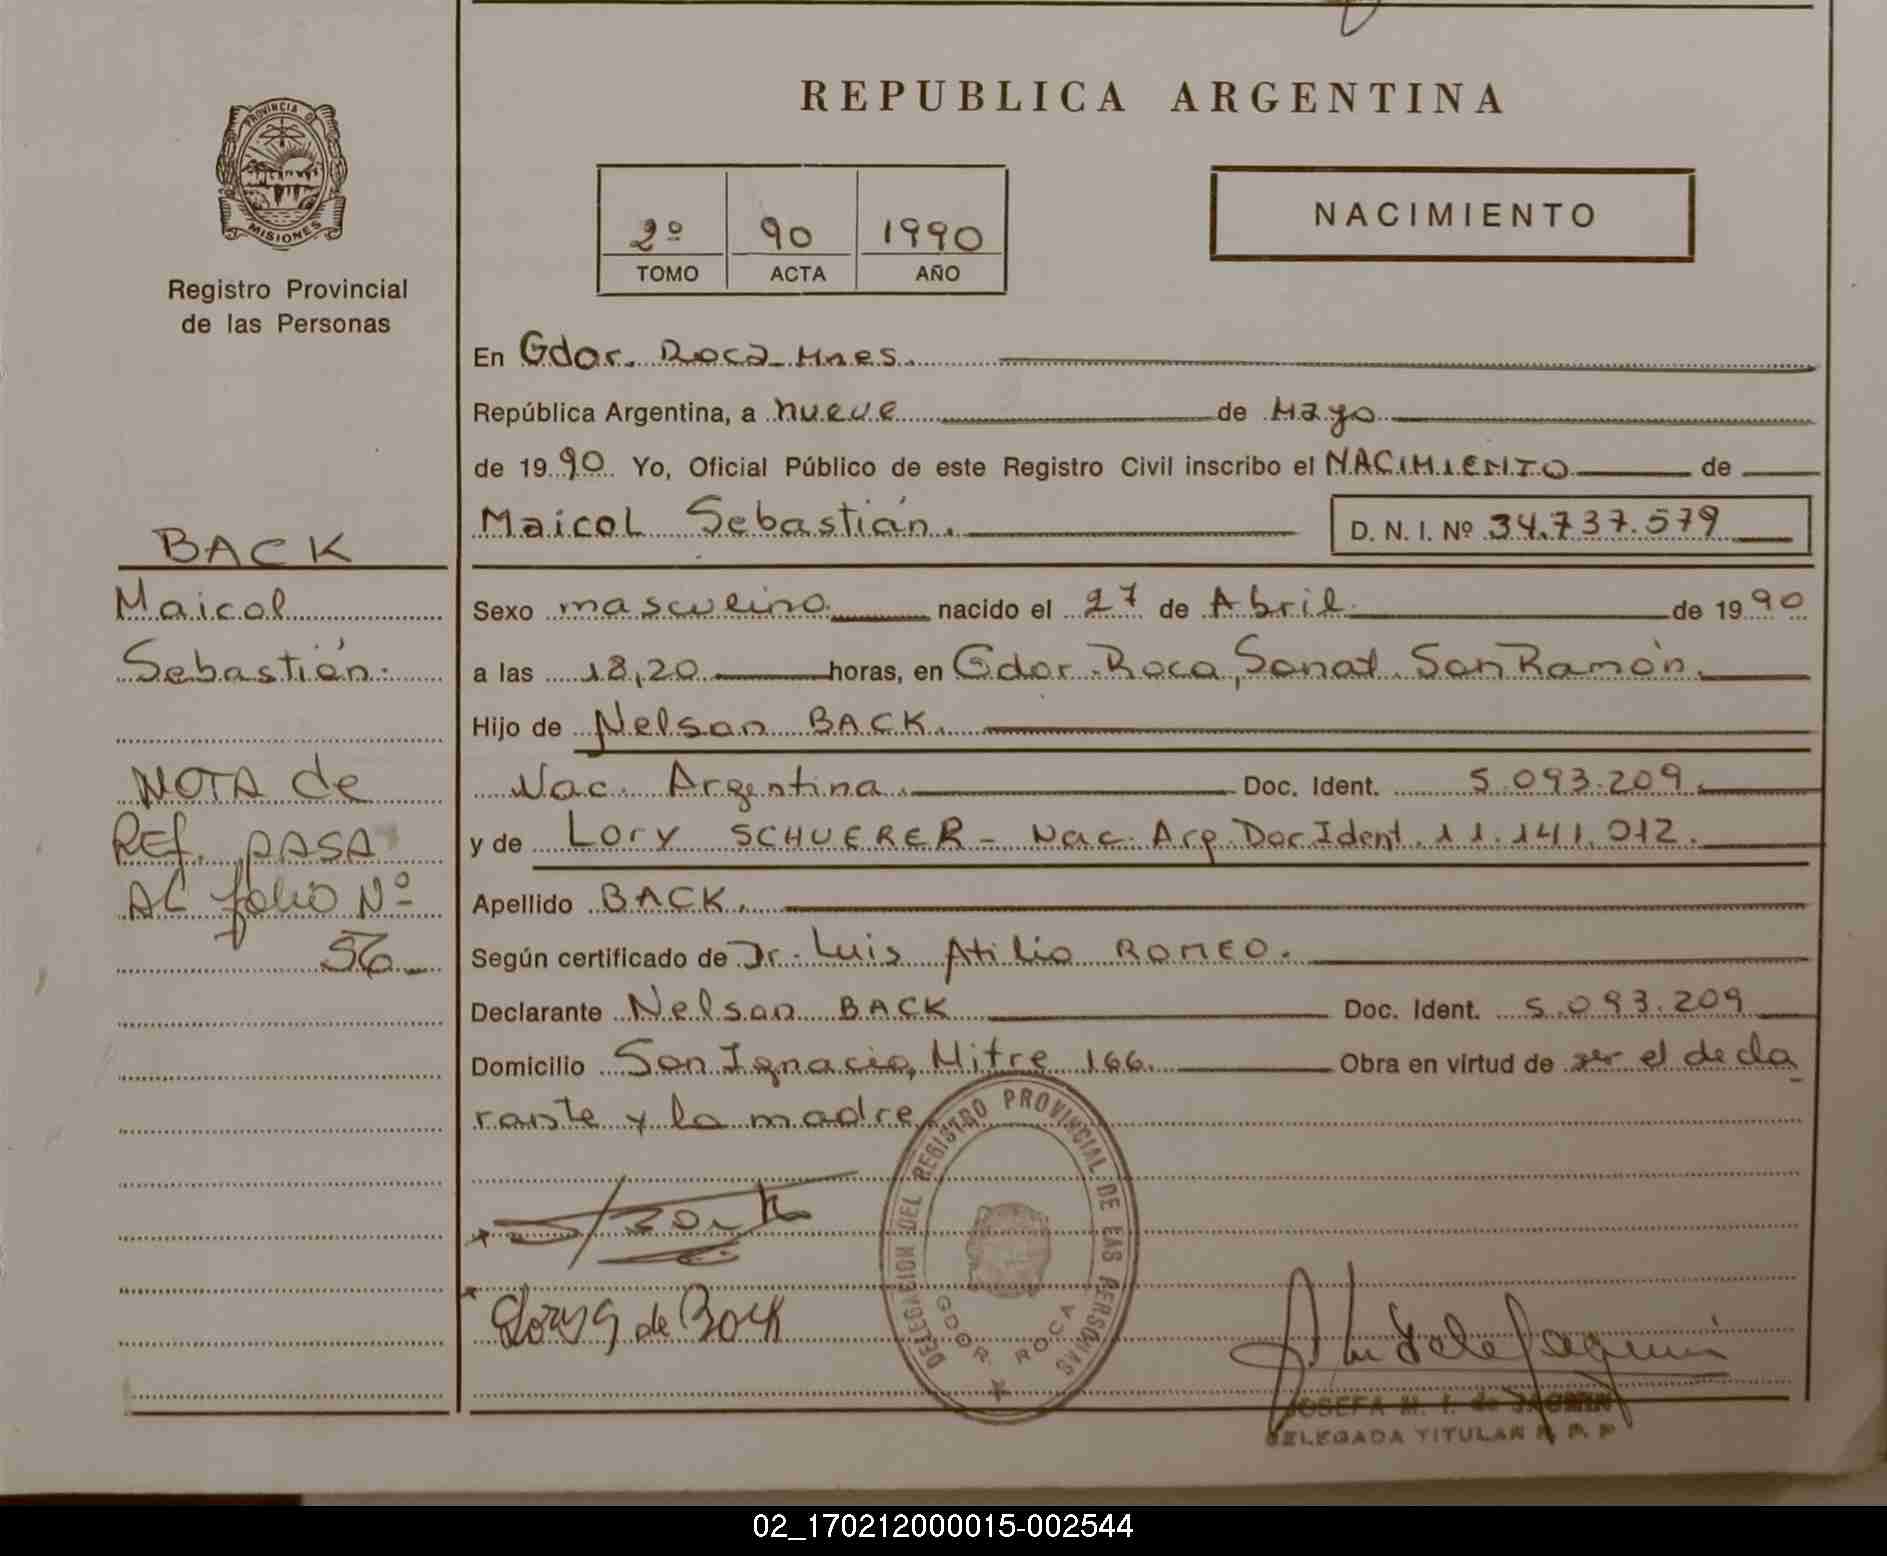 REPUBLICA ARGENTINA
PROVINCIA D
MISIONES
Registro Provincial
de las Personas
2º 90 1990
TOMO ACTA AÑO
NACIMIENTO
En Gdor. Roca Mnes.
República Argentina, a nueve de Mayo
de 1990 Yo, Oficial Público de este Registro Civil inscribo el NACIMIENTO de
Maicol Sebastián. D. N. I. Nº 34.737.579
BACK
Maicol
Sebastián.
NOTA de
REf. PASA
AL folio Nº
56
Sexo masculino nacido el 27 de Abril de 1990
a las 18,20 horas, en Gdor. Roca, Sanat. San Ramón.
Hijo de Nelson BACK.
Nac. Argentina. Doc. Ident. 5.093.209.
y de Lory SCHUERER - Nac. Arg. Doc Ident. 11.141.012.
Apellido BACK.
Según certificado de Dr. Luis Atilio ROMEO.
Declarante Nelson BACK Doc. Ident. 5.093.209
Domicilio San Ignacio, Mitre 166. Obra en virtud de ser el decla
rante y la madre
DELEGACION DEL REGISTRO PROVINCIAL DE LAS PERSONAS
GDOR. ROCA
de Back
JOSEFA M. I. de JAQUIN
DELEGADA TITULAR R. P. P
02_170212000015-002544